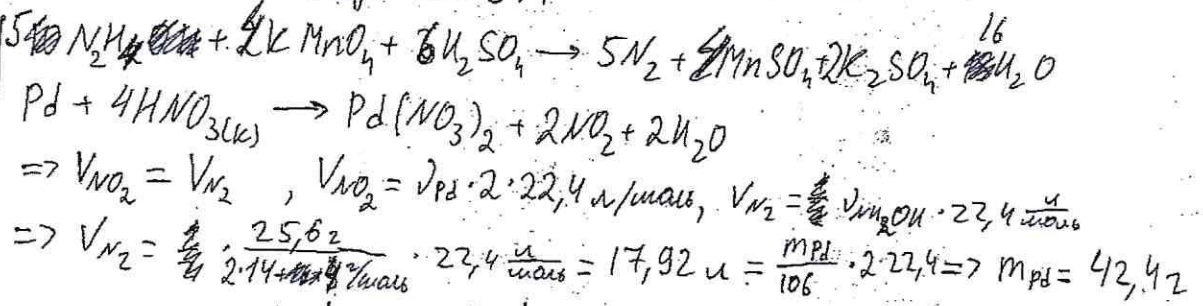 5 N₂H₄ + 4KMnO₄ + 6H₂SO₄ → 5N₂ + 4MnSO₄ + 2K₂SO₄ + 16 H₂O
Pd + 4HNO₃(к) → Pd(NO₃)₂ + 2NO₂ + 2H₂O
=> V_NO₂ = V_N₂ , V_NO₂ = ν_Pd · 2 · 22,4 л/моль, V_N₂ = ν_NH₂OH · 22,4 л/моль
=> V_N₂ = · 25,6 г / 2·14+4 г/моль · 22,4 л/моль = 17,92 л = m_Pd/106 · 2·22,4 => m_Pd = 42,4 г